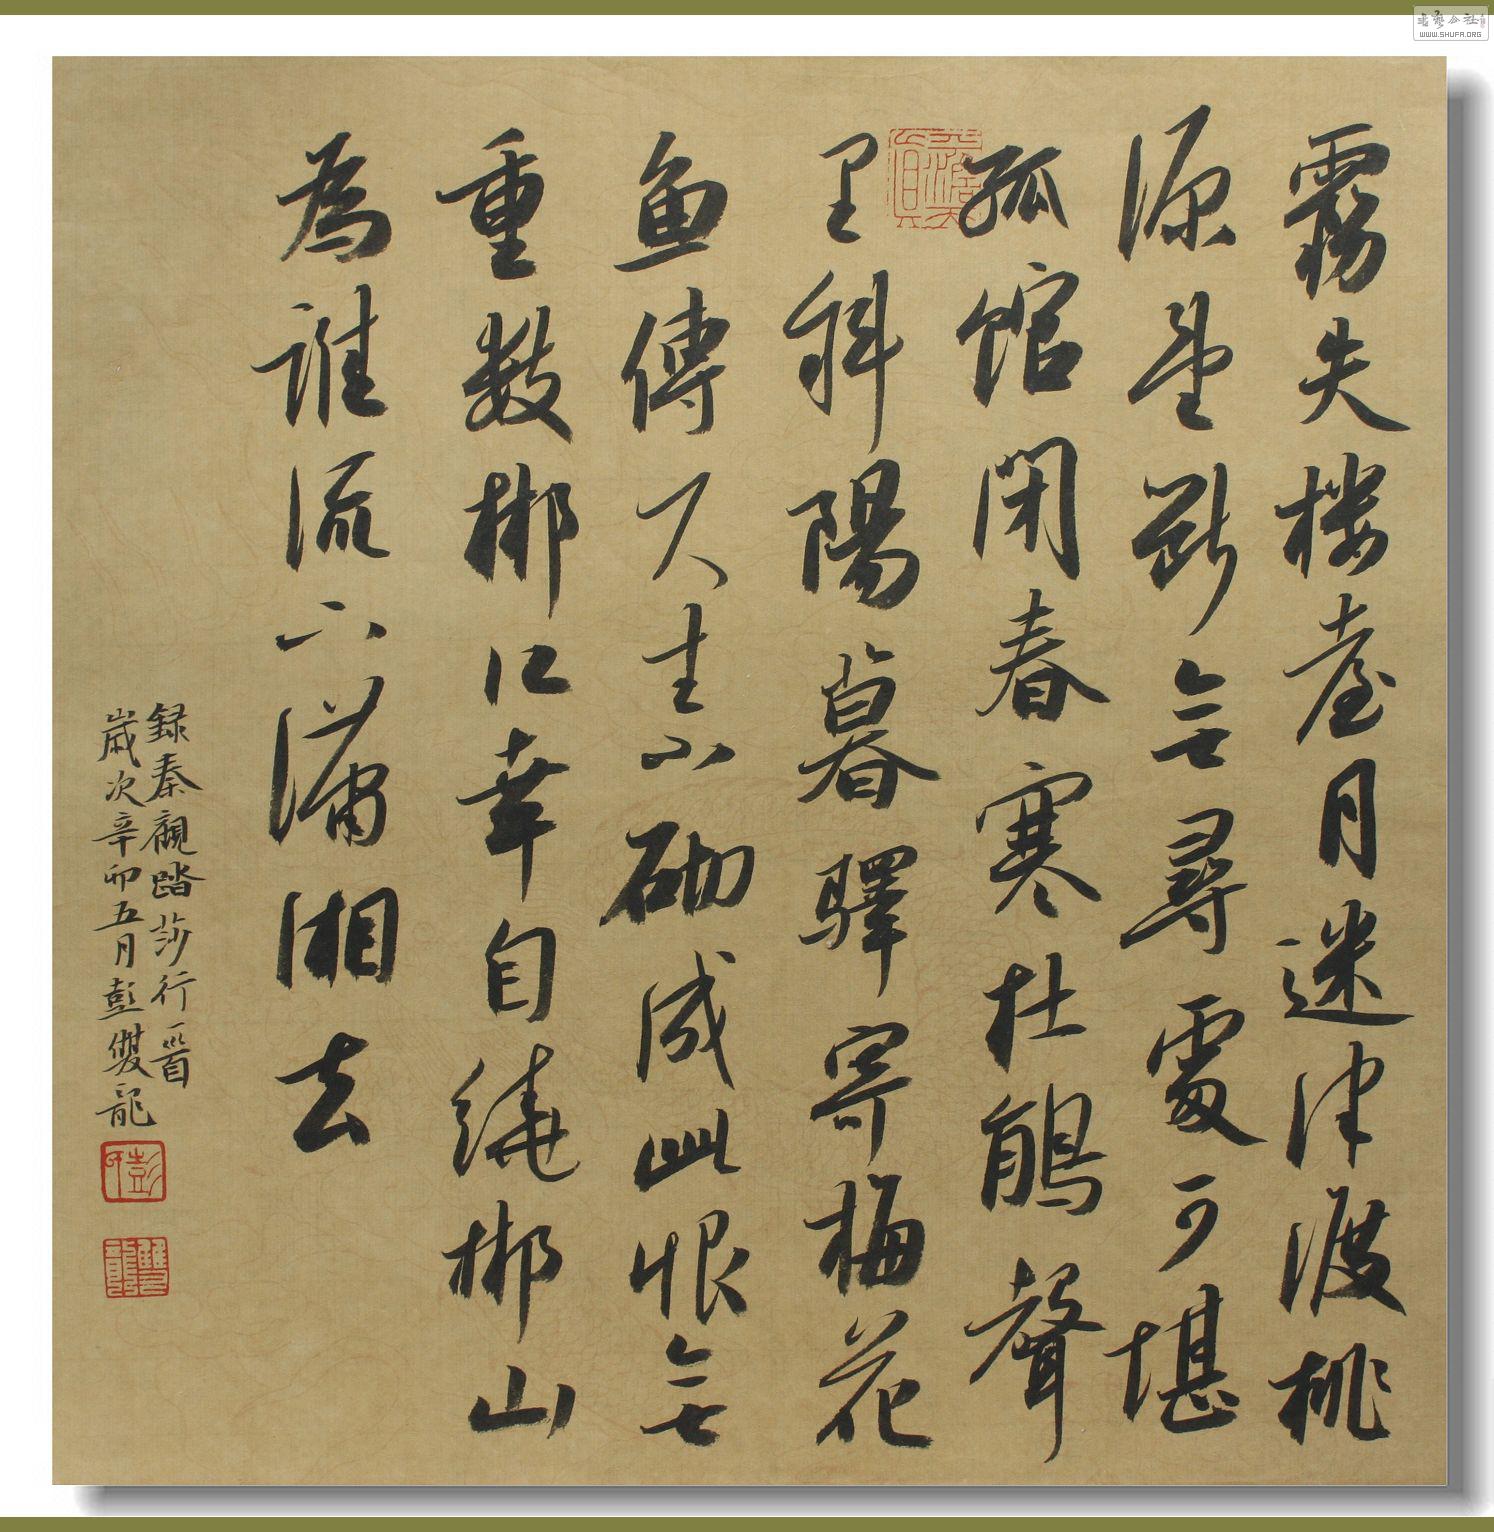 霧失楼臺月迷津渡桃
源望斷無尋處可堪
孤馆閉春寒杜鵑聲
里斜陽暮驛寄梅花
鱼傳尺素砌成此恨無
重数郴江幸自繞郴山
為誰流下瀟湘去
録秦觀踏莎行一首
歲次辛卯五月彭雙龍
彭
雙龍
书艺公社
WWW.SHUFA.ORG